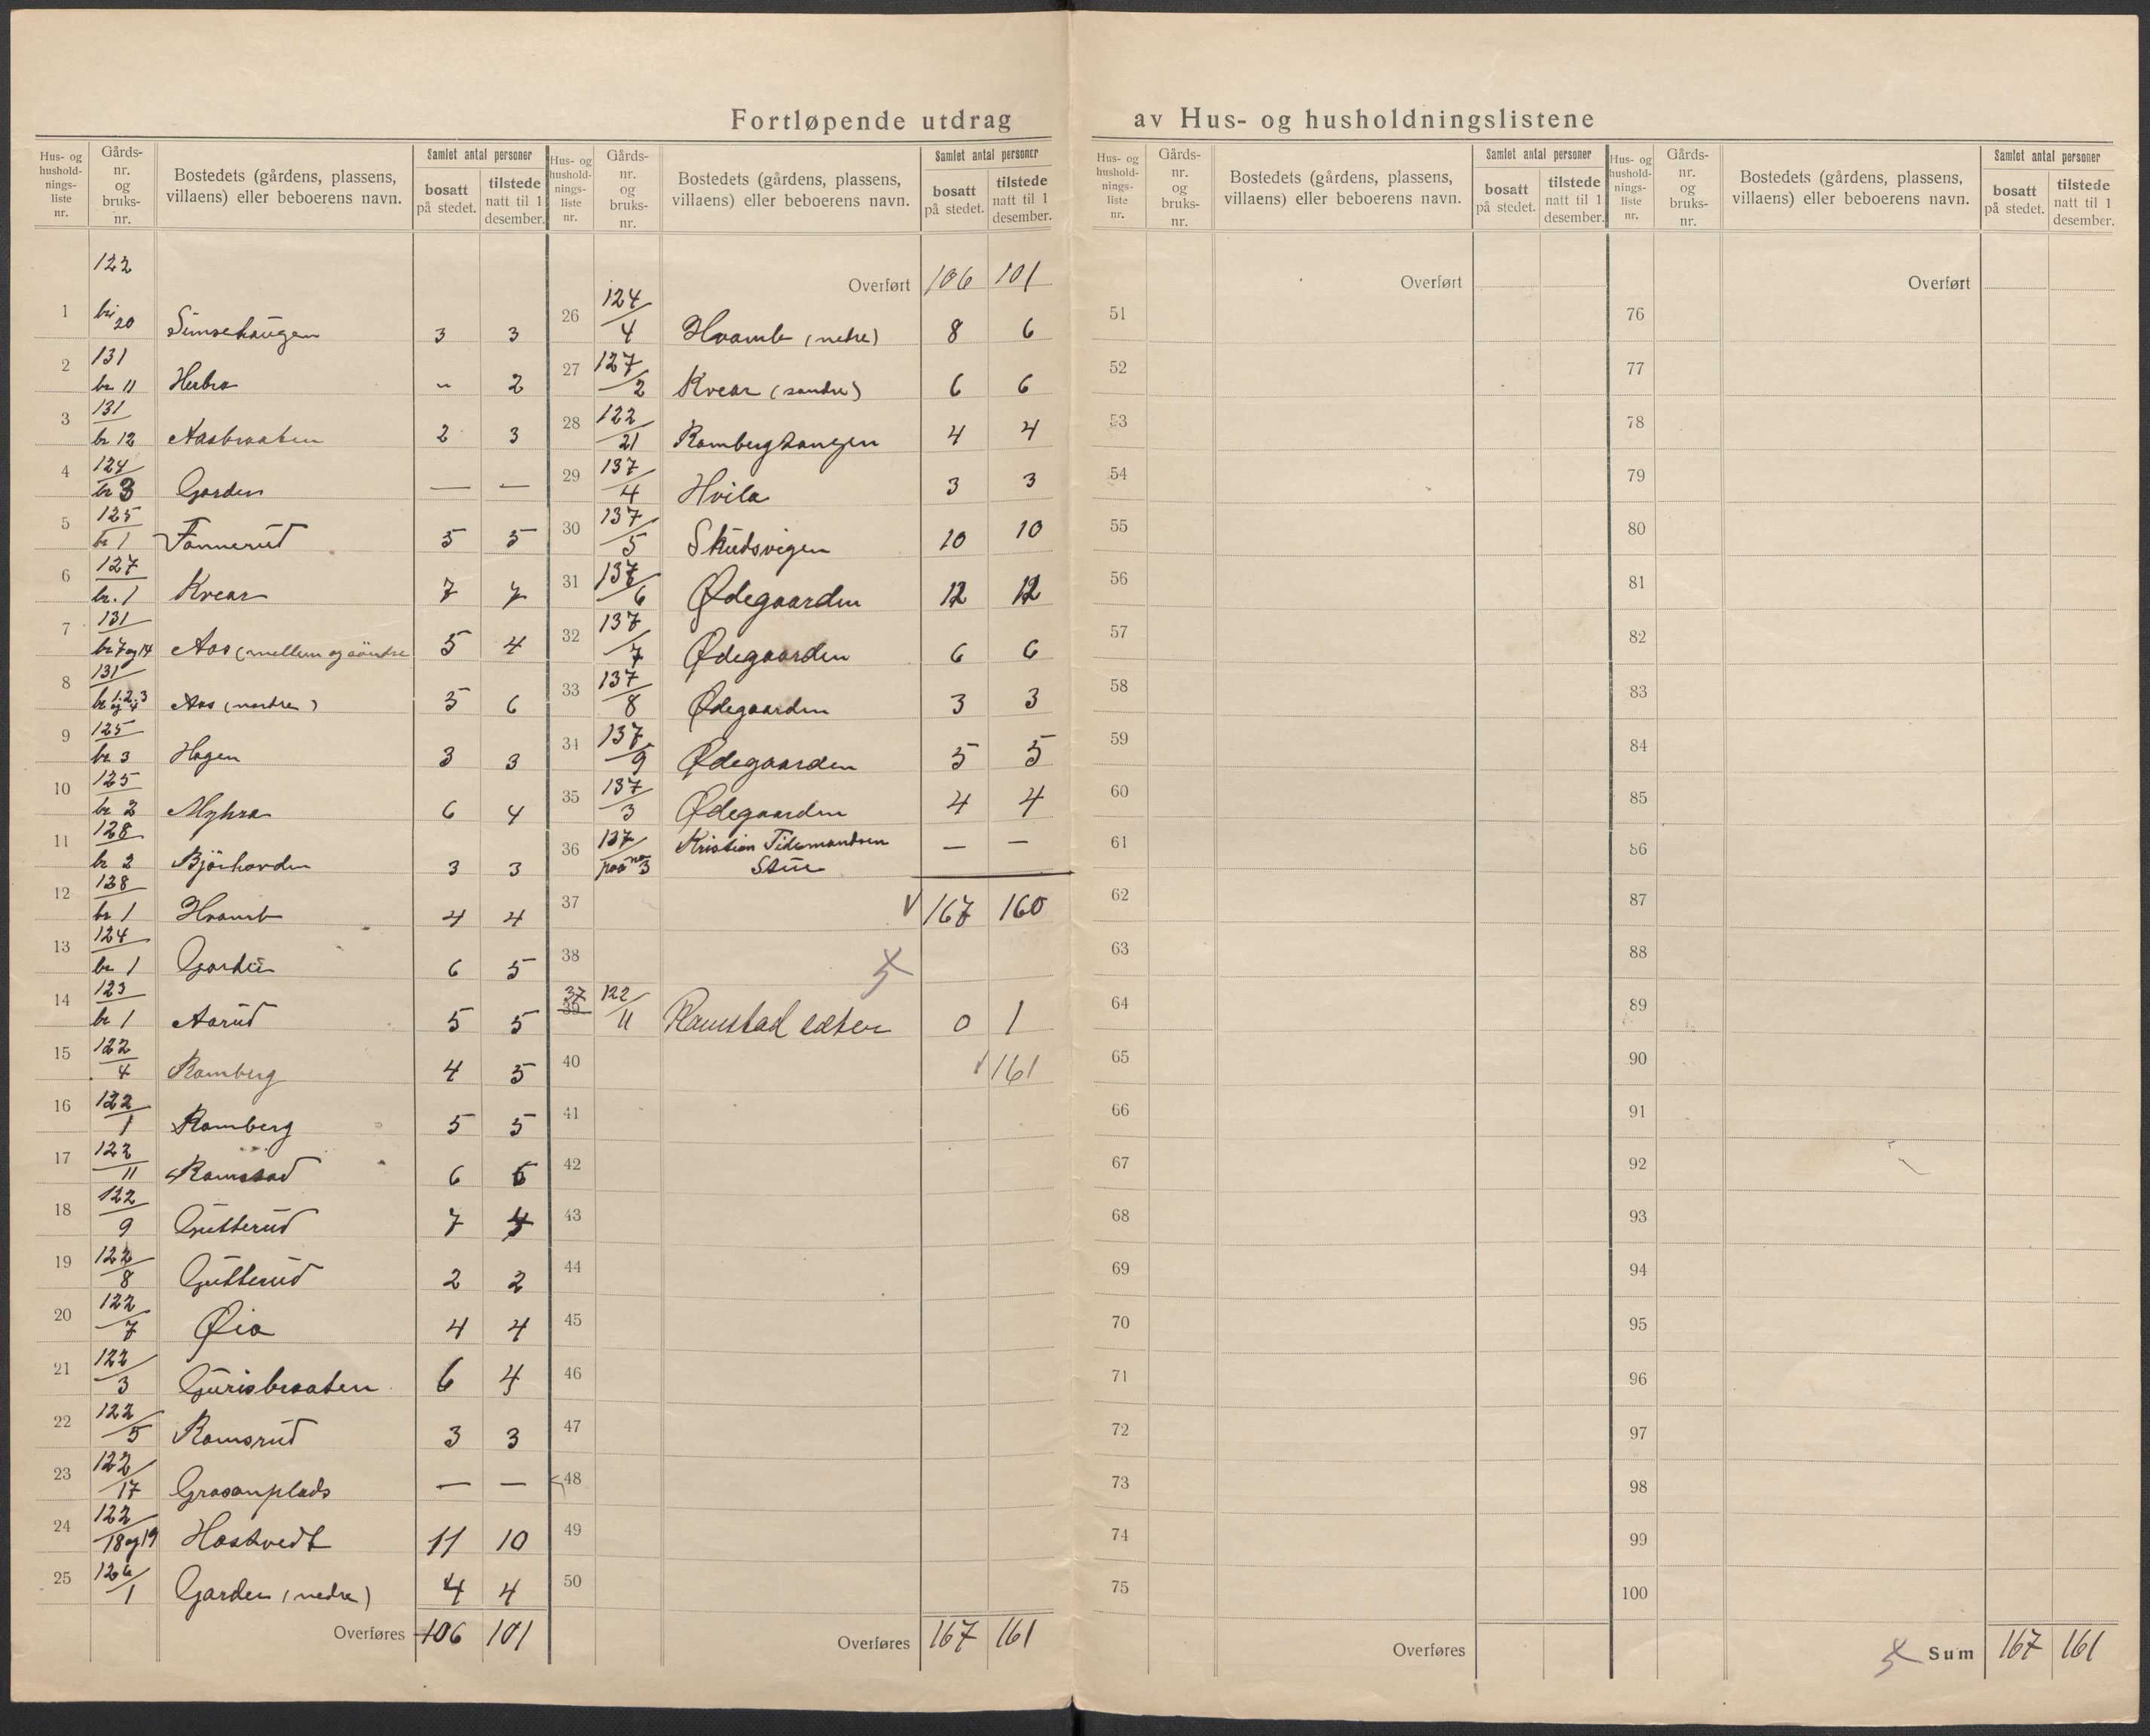 Fortløpende utdrag av Hus- og husholdningslistene
Hus- og husholdnings-liste nr. | Gårds-nr. og bruks-nr. | Bostedets (gårdens, plassens, villaens) eller beboerens navn. | Samlet antal personer | bosatt på stedet. | tilstede natt til 1 desember.
122
1 br 20 Simsehaugen 3 3
2 131 br 11 Herbro 2
3 131 br 12 Aasbraaten 2 3
4 124 br 3 Garden — —
5 125 br 1 Fannerud 5 5
6 127 br. 1 Kvear 7 7
7 131 br 7 og 14 Aas (mellem og söndre 5 4
8 131 br 1, 2, 3 og 4 Aas (nordre) 5 6
9 125 br. 3 Hagen 3 3
10 125 br 2 Myhra 6 4
11 128 br 2 Björhovden 3 3
12 128 br 1 Hvamb 4 4
13 124 br 1 Garden 6 5
14 123 br 1 Aarud 5 5
15 122/4 Ramberg 4 5
16 122/1 Ramberg 5 5
17 122/11 Ramstad 6
18 122/9 Gutterud 7
19 122/8 Gutterud 2 2
20 122/7 Øia 4 4
21 122/3 Gurisbraaten 6 4
22 122/5 Ramsrud 3 3
23 122/17 — —
24 122/18 og 19 Haskvedt 11 10
25 126/1 Garden (nedre) 4 4
Overføres 106 101
Hus- og husholdnings-liste nr. | Gårds-nr. og bruks-nr. | Bostedets (gårdens, plassens, villaens) eller beboerens navn. | Samlet antal personer | bosatt på stedet. | tilstede natt til 1 desember.
Overført 106 101
26 124/4 Hvamb (nedre) 8 6
27 127/2 Kvear (søndre) 6 6
28 122/21 Ramberghaugen 4 4
29 137/4 Hvila 3 3
30 137/5 Skudsvigen 10 10
31 137/6 Ødegaarden 12 12
32 137/7 Ødegaarden 6 6
33 137/8 Ødegaarden 3 3
34 137/9 Ødegaarden 5 5
35 137/3 Ødegaarden 4 4
36 137/paa no 3 Kristian Tidemandsen — —
Stue
37 167 160
38
37 39 122/11 Ramstad sæter 0 1
40 161
41
42
43
44
45
46
47
48
49
50
Overføres 167 161
Hus- og husholdnings-liste nr. | Gårds-nr. og bruks-nr. | Bostedets (gårdens, plassens, villaens) eller beboerens navn. | Samlet antal personer | bosatt på stedet. | tilstede natt til 1 desember.
Overført
51
52
53
54
55
56
57
58
59
60
61
62
63
64
65
66
67
68
69
70
71
72
73
74
75
Overføres
Hus- og husholdnings-liste nr. | Gårds-nr. og bruks-nr. | Bostedets (gårdens, plassens, villaens) eller beboerens navn. | Samlet antal personer | bosatt på stedet. | tilstede natt til 1 desember.
Overført
76
77
78
79
80
81
82
83
84
85
86
87
88
89
90
91
92
93
94
95
96
97
98
99
100
Sum 167 161